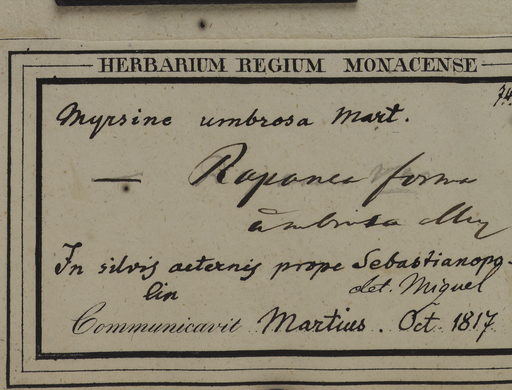 HERBARIUM REGIUM MONACENSE
Myrsine umbrosa Mart.
— Rapanea forma
umbrosa Miq
In silvis aeternis prope Sebastianopo-
lin det. Miquel
Communicavit Martius. Oct. 1817